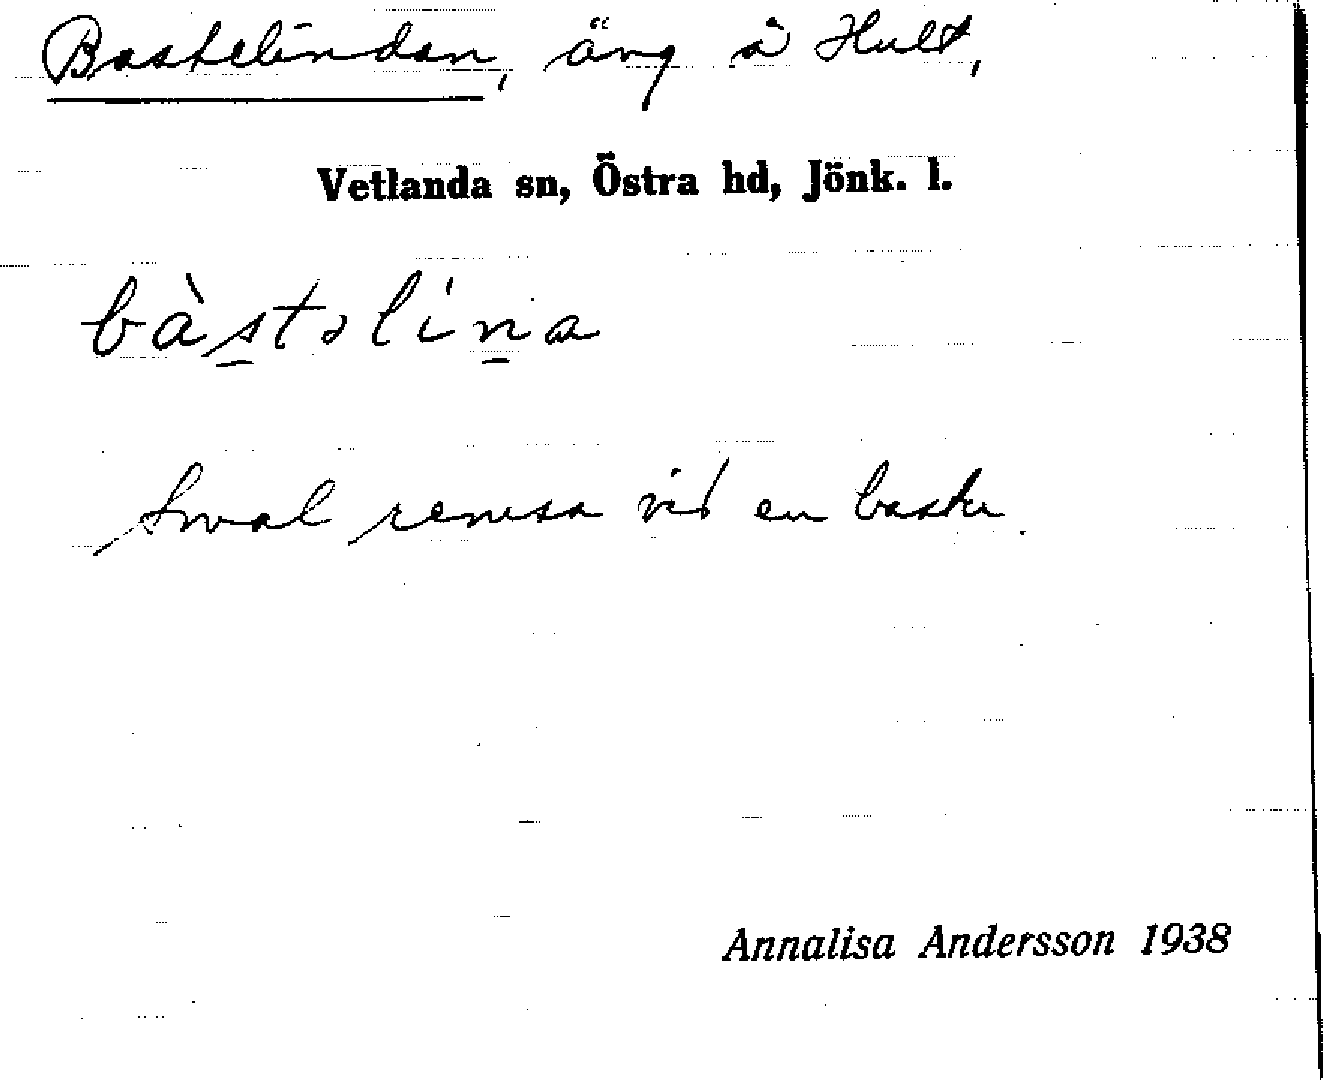 Bastelindan, äng å Hult,
Vetlanda sn, Östra hd, Jönk. l.
bàstəlina
Smal remsa vid en bastu.
Annalisa Andersson 1938